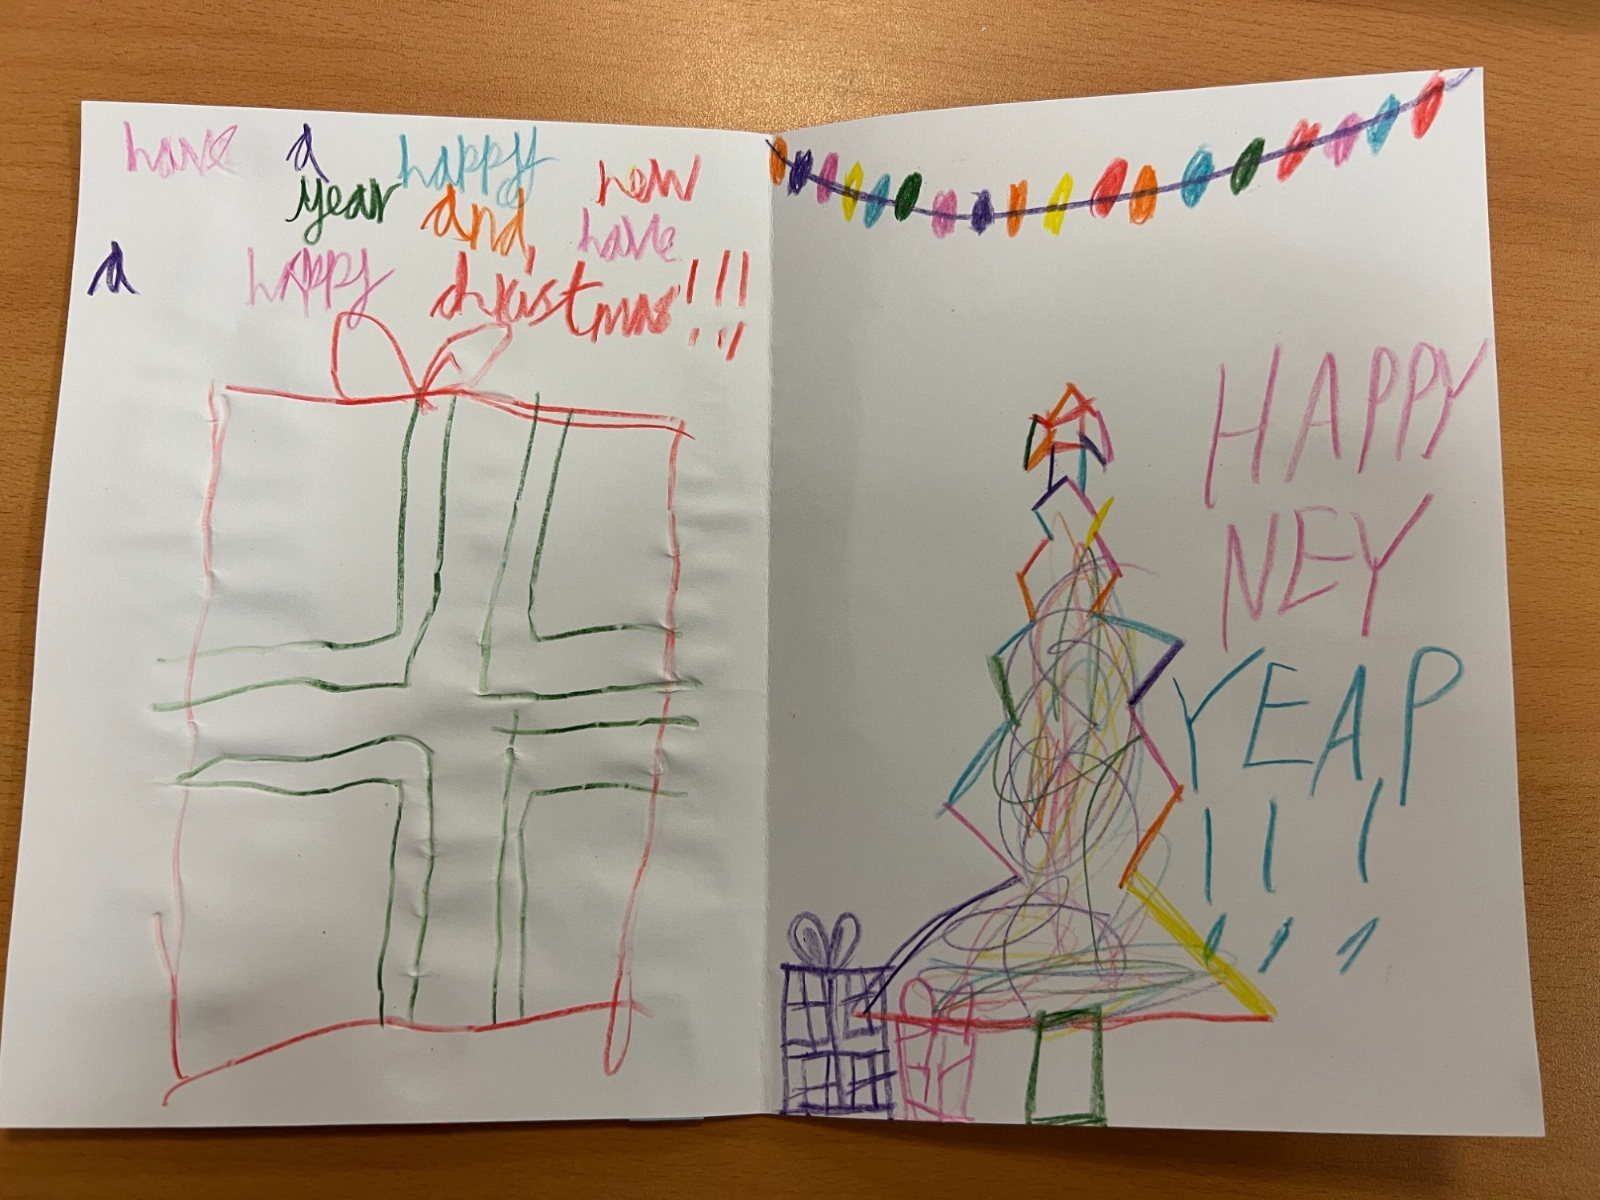 have a happy new
year and, have
a happy christmas!!!
HAPPY
NEY
YEAP
!!!